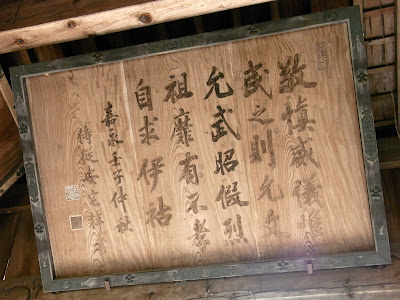 敬慎威儀惟
民之則允文
允武昭假烈
祖靡有不孝
自求伊祜
嘉永壬子仲秋